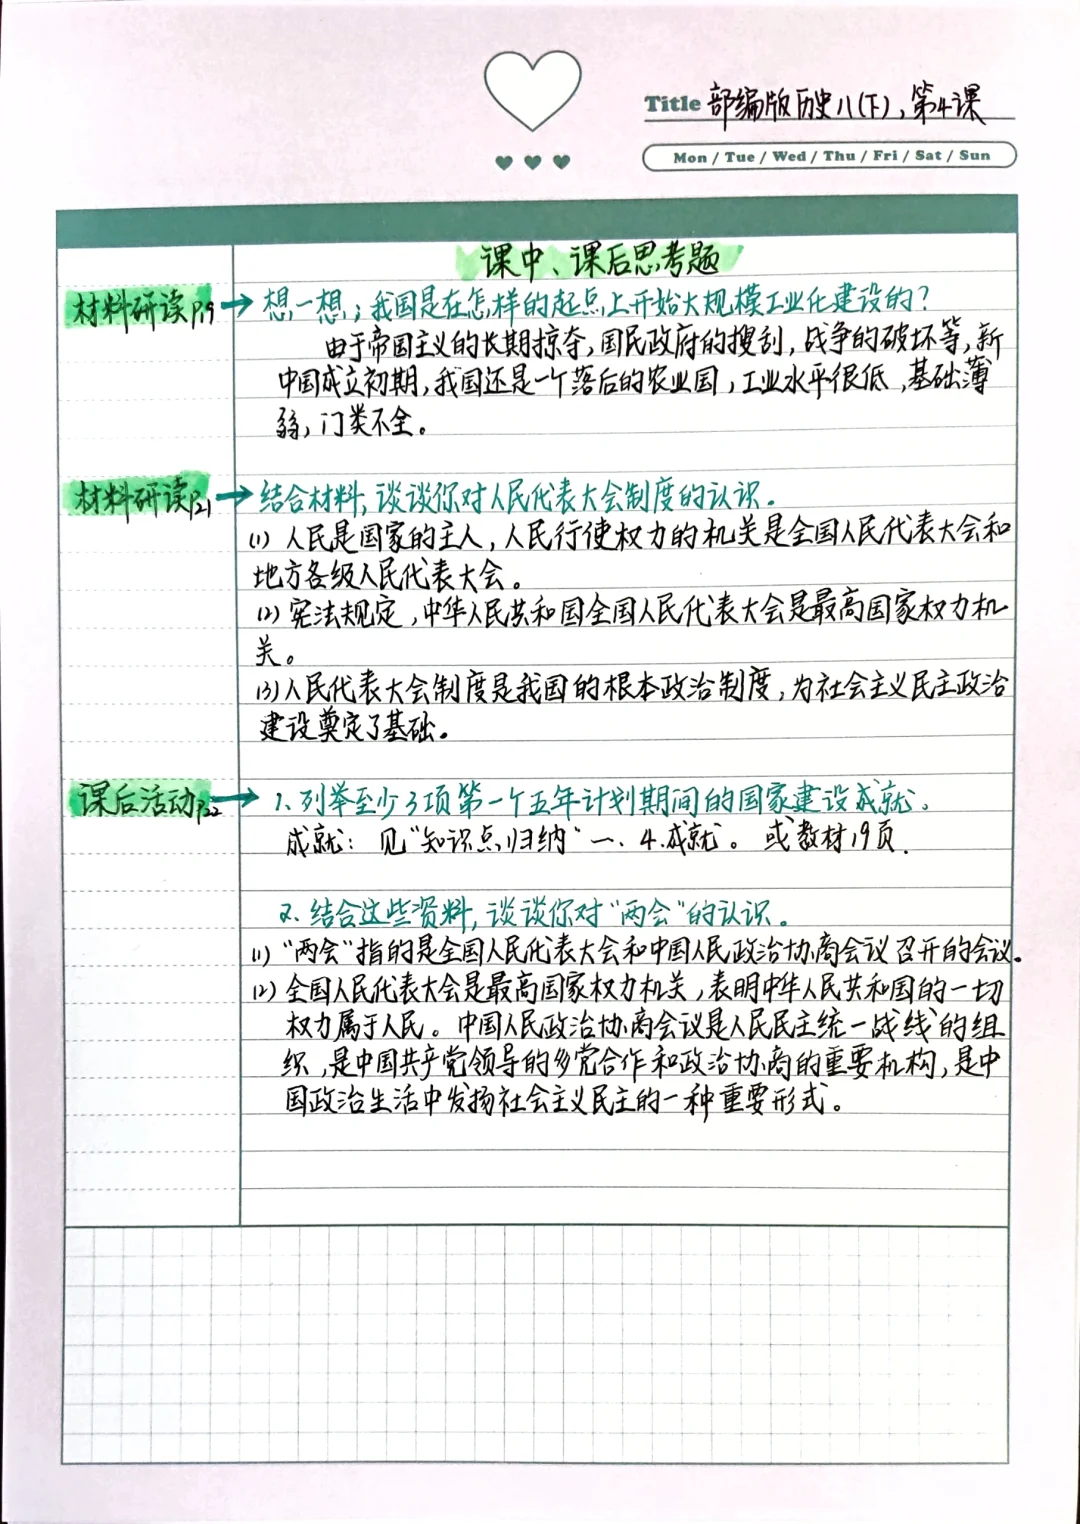 Title 部编版历史八(下),第4课
Mon / Tue / Wed / Thu / Fri / Sat / Sun
课中、课后思考题
材料研读P19→想一想;我国是在怎样的起点上开始大规模工业化建设的?
由于帝国主义的长期掠夺,国民政府的搜刮,战争的破坏等,新
中国成立初期,我国还是一个落后的农业国,工业水平很低,基础薄
弱,门类不全。
材料研读P21→结合材料,谈谈你对人民代表大会制度的认识。
(1) 人民是国家的主人,人民行使权力的机关是全国人民代表大会和
地方各级人民代表大会。
(2) 宪法规定,中华人民共和国全国人民代表大会是最高国家权力机
关。
(3)人民代表大会制度是我国的根本政治制度,为社会主义民主政治
建设奠定了基础。
课后活动P22→1、列举至少3项第一个五年计划期间的国家建设成就。
成就:见“知识点归纳“一、4.成就。或教材19页.
2、结合这些资料,谈谈你对“两会“的认识。
(1) “两会“指的是全国人民代表大会和中国人民政治协商会议召开的会议.
(2) 全国人民代表大会是最高国家权力机关,表明中华人民共和国的一切
权力属于人民。中国人民政治协商会议是人民民主统一战线的组
织,是中国共产党领导的多党合作和政治协商的重要机构,是中
国政治生活中发扬社会主义民主的一种重要形式。